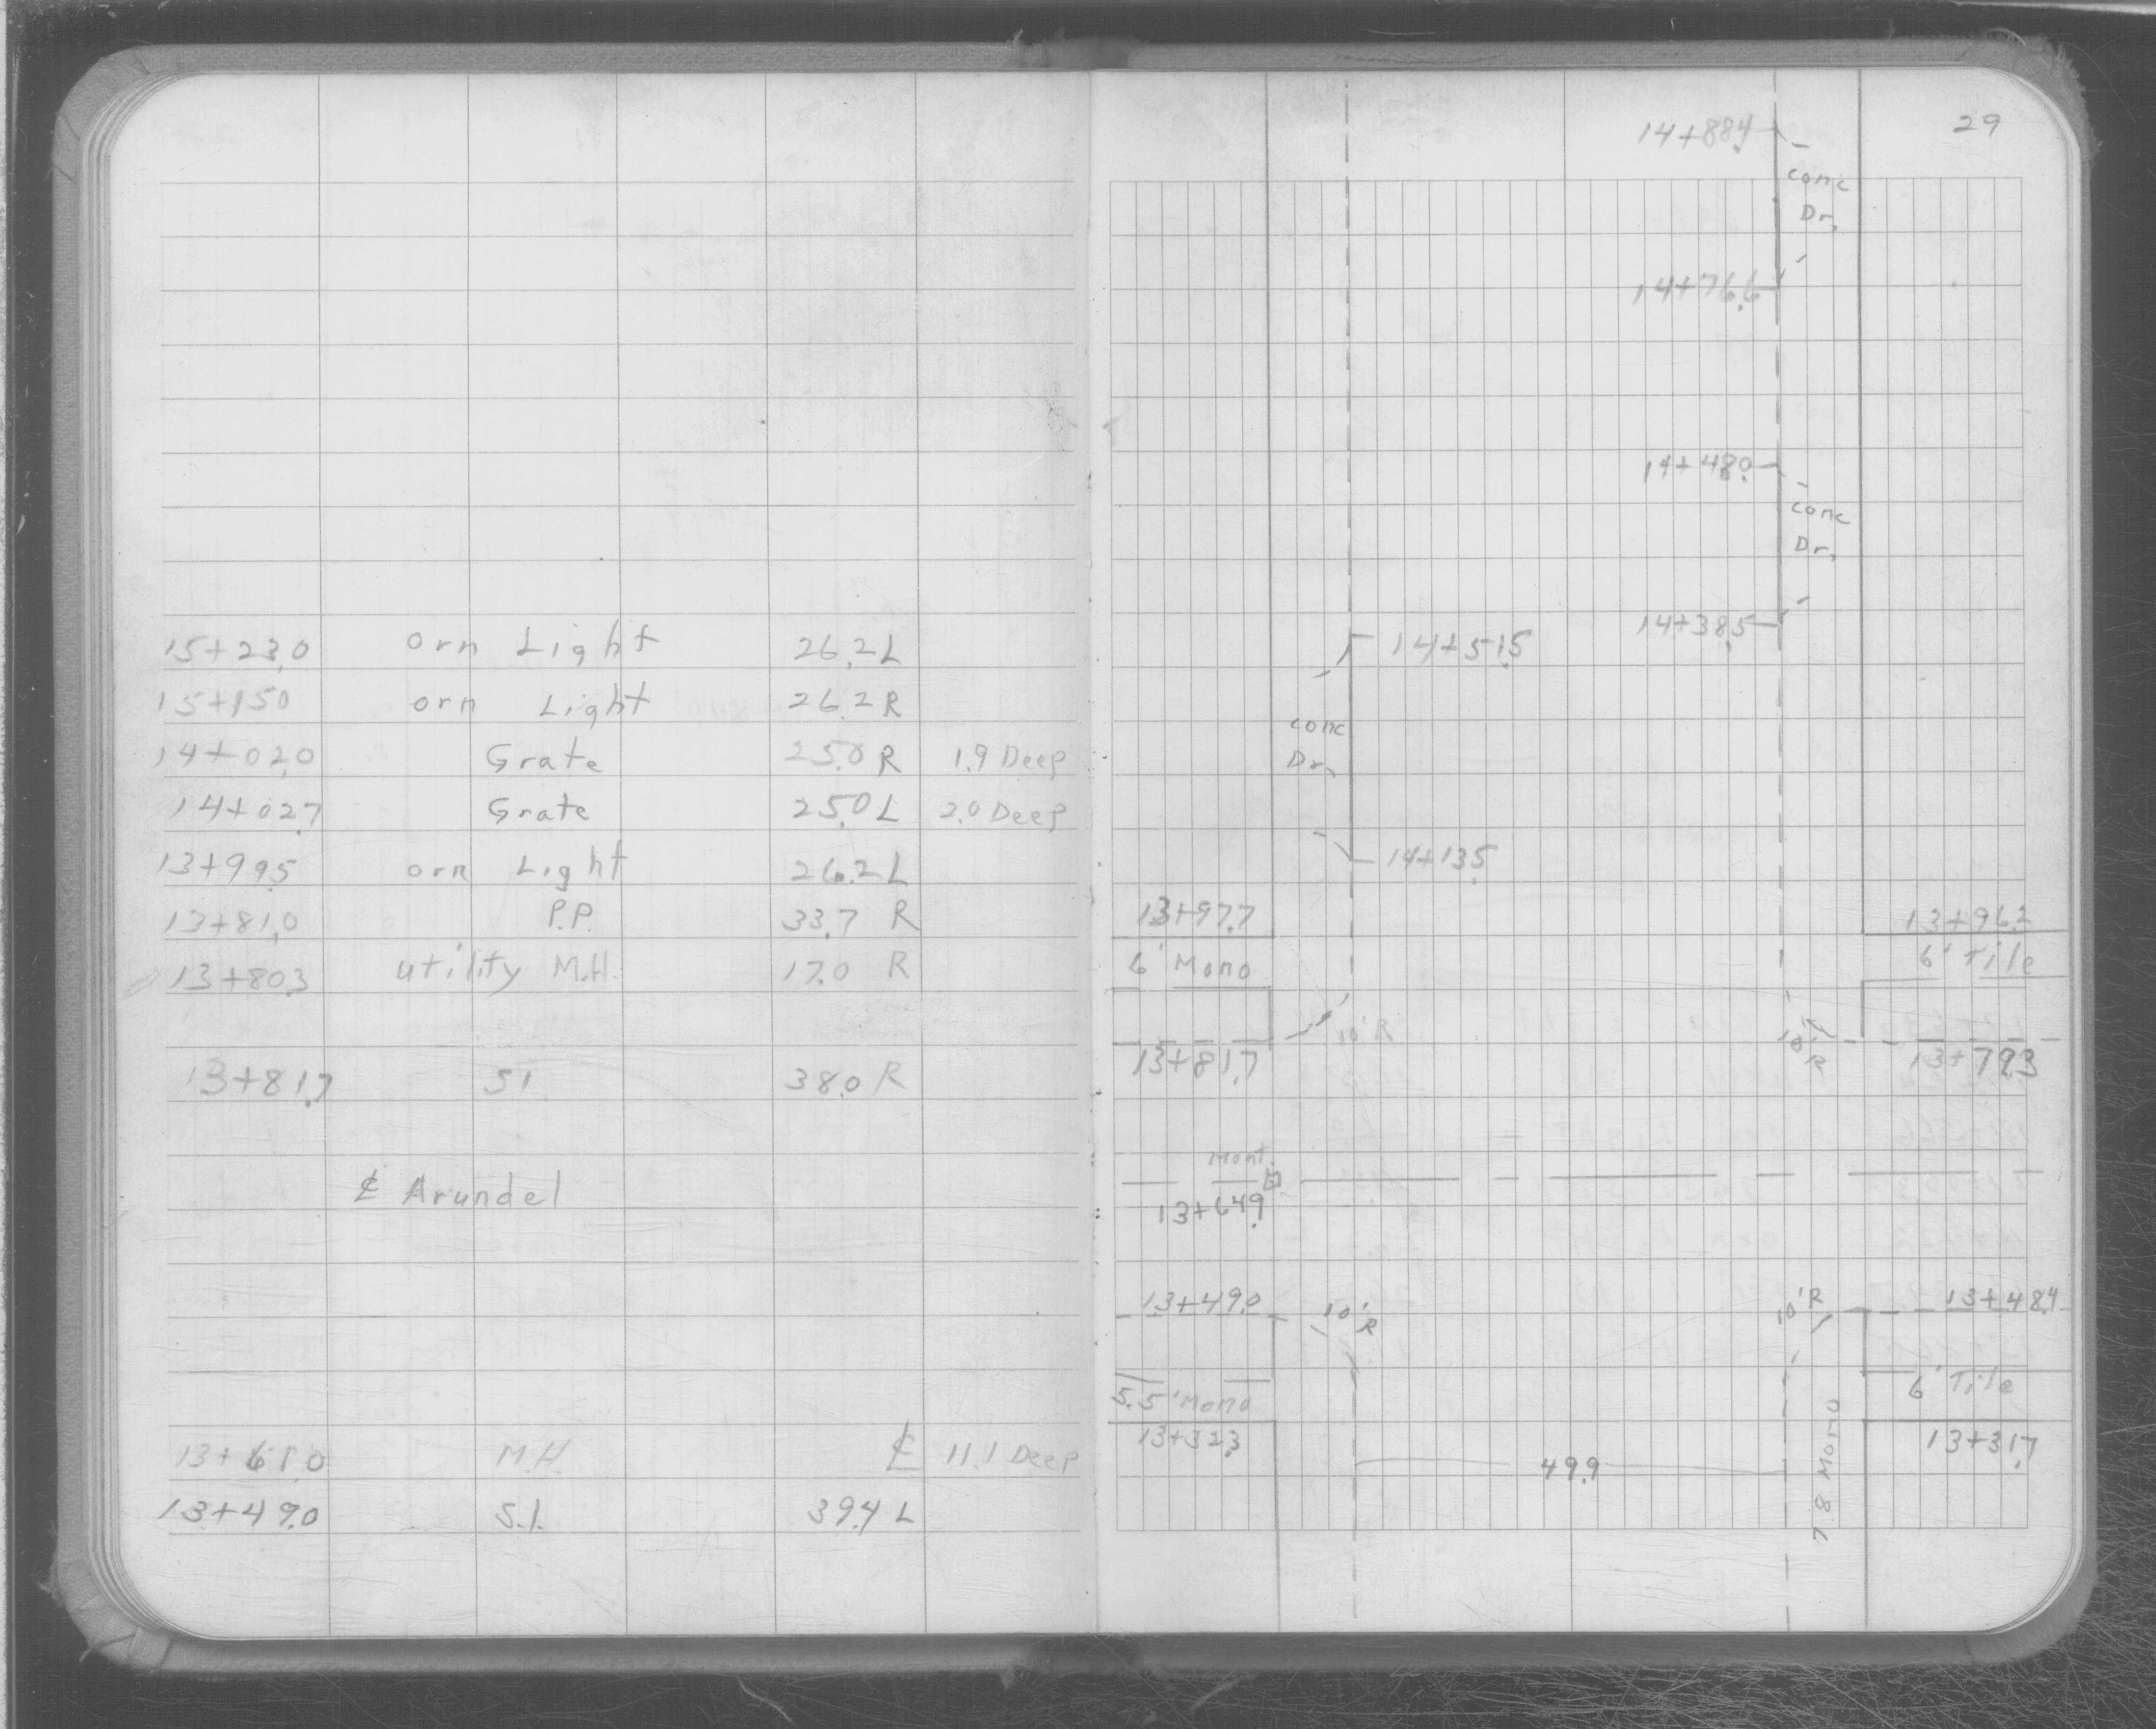 15+23.0 orn Light 26.2 L
15+15.0 orn Light 26.2 R
14+02.0 Grate 25.0 R 1.9 Deep
14+02.7 Grate 25.0 L 2.0 Deep
13+99.5 orn Light 26.2 L
13+81.0 P.P. 33.7 R
13+80.3 utility M.H. 17.0 R
13+81.7 S1 38.0 R
₵ Arundel
13+61.0 M.H. ₵ 11.1 Deep
13+49.0 S.1. 39.4 L
29
14+88.4
conc
Dr.
14+76.6
14+48.0
conc
Dr.
14+38.5
14+51.5
conc
Dr.
14+13.5
13+97.7
6' Mono
13+81.7
10' R
13+96.2
6' Tile
10' R
13+79.3
Mont.
13+64.9
13+49.0
10' R
10' R
13+48.4
5.5' Mono
13+32.3
6' Tile
13+31.7
49.9
7.8 Mono